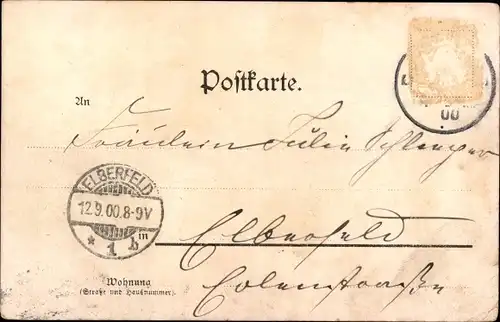 Postkarte.
An
Fräulein Julie Schlenger
ELBERFELD
12.9.00.8-9V
* 1 b
00
in
Elberfeld
Wohnung
(Straße und Hausnummer).